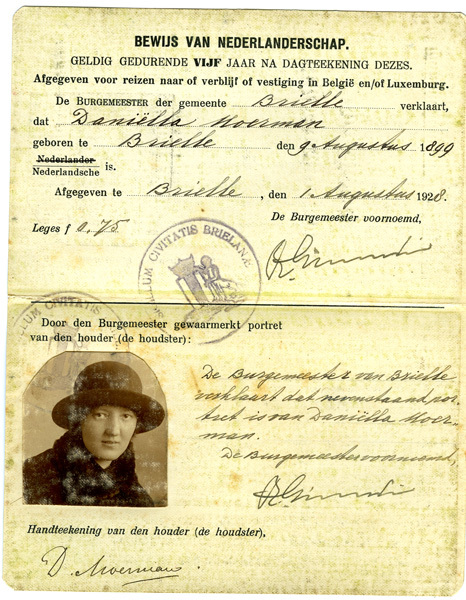 BEWIJS VAN NEDERLANDERSCHAP.
GELDIG GEDURENDE VIJF JAAR NA DAGTEEKENING DEZES.
Afgegeven voor reizen naar of verblijf of vestiging in België en/of Luxemburg.
De BURGEMEESTER der gemeente Brielle verklaart,
dat Daniëlla Moerman
geboren te Brielle den 9 Augustus 1899
Nederlander
Nederlandsche is.
Afgegeven te Brielle, den 1 Augustus 1928.
De Burgemeester voornoemd,
Leges f 0.75
CIVITATIS BRIELANÆ
LLUM CIVITATIS
Door den Burgemeester gewaarmerkt portret
van den houder (de houdster):
De Burgemeester van Brielle
verklaart dat nevenstaand por-
tret is van Daniëlla Moer-
man.
De Burgemeester voornoemd,
Handteekening van den houder (de houdster),
D. Moerman